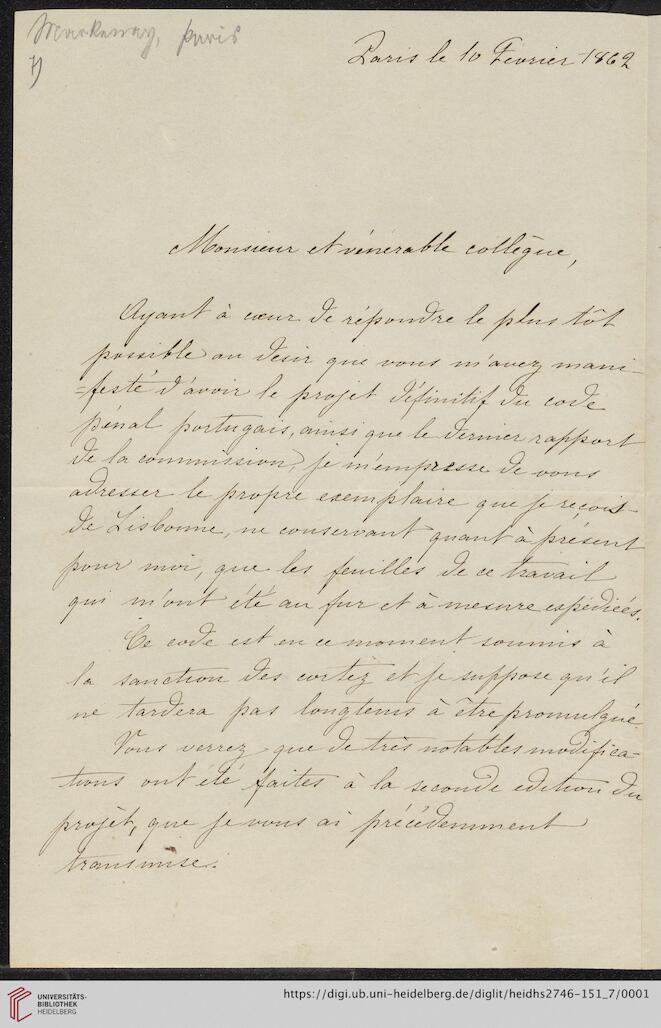 paris
7)
Paris le 10 Fevrier 1862
Monsieur et vénérable collègue,
Ayant à cœur de répondre le plus tôt
possible au desir que vous m'avez mani-
=festé d'avoir le projet définitif du code
pénal portugais, ainsi que le dernier rapport
de la commission, je m'empresse de vous
adresser le propre exemplaire que je reçois
de Lisbonne, ne conservant quant à présent
pour moi, que les feuilles de ce travail
qui m'ont été au fur et à mesure expédiées.
Ce code est en ce moment soumis à
la sanction des cortez et je suppose qu'il
ne tardera pas longtems à être promulgué.
Vous verrez que de très notables modifica-
tions ont été faites à la seconde edition du
projèt, que je vous ai précédemment
transmise.
UNIVERSITÄTS-
BIBLIOTHEK
HEIDELBERG
https://digi.ub.uni-heidelberg.de/diglit/heidhs2746-151_7/0001